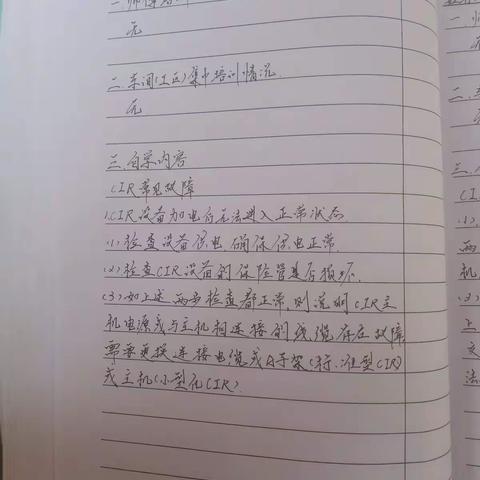 无
二.车间(工区)集中培训情况.
无
三.自学内容
CIR常见故障
1.CIR设备加电后无法进入正常状态.
(1)检查设备供电确保供电正常.
(2)检查CIR设备的保险管是否损坏.
(3)如上述两步检查都正常,则说明CIR主
机电源或与主机相连接的线缆存在故障
需要更换连接电缆或A子架(标准型CIR)
或主机(小型化CIR).